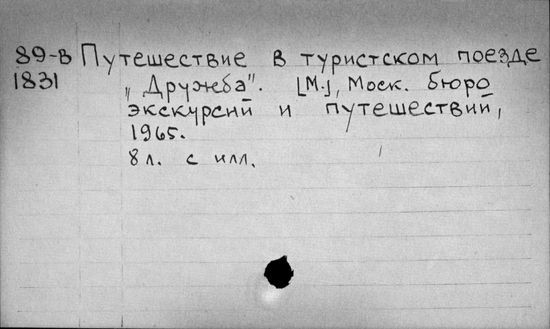 89-В Путешествие в туристском поезде
1831 „Дружба". [М.], Моск. бюро
экскурсий и путешествий,
1965.
8 л. с илл.